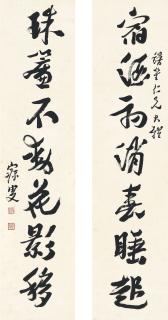 仁兄大雅
宿酒初消春睡起
珠簾不動花影移
寐叟